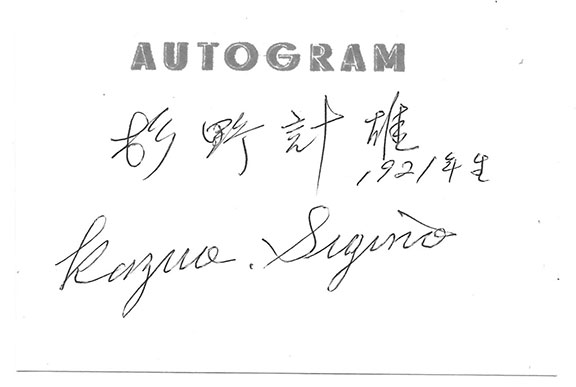 AUTOGRAM
杉野計雄
1921年生
Kazuo. Sigino